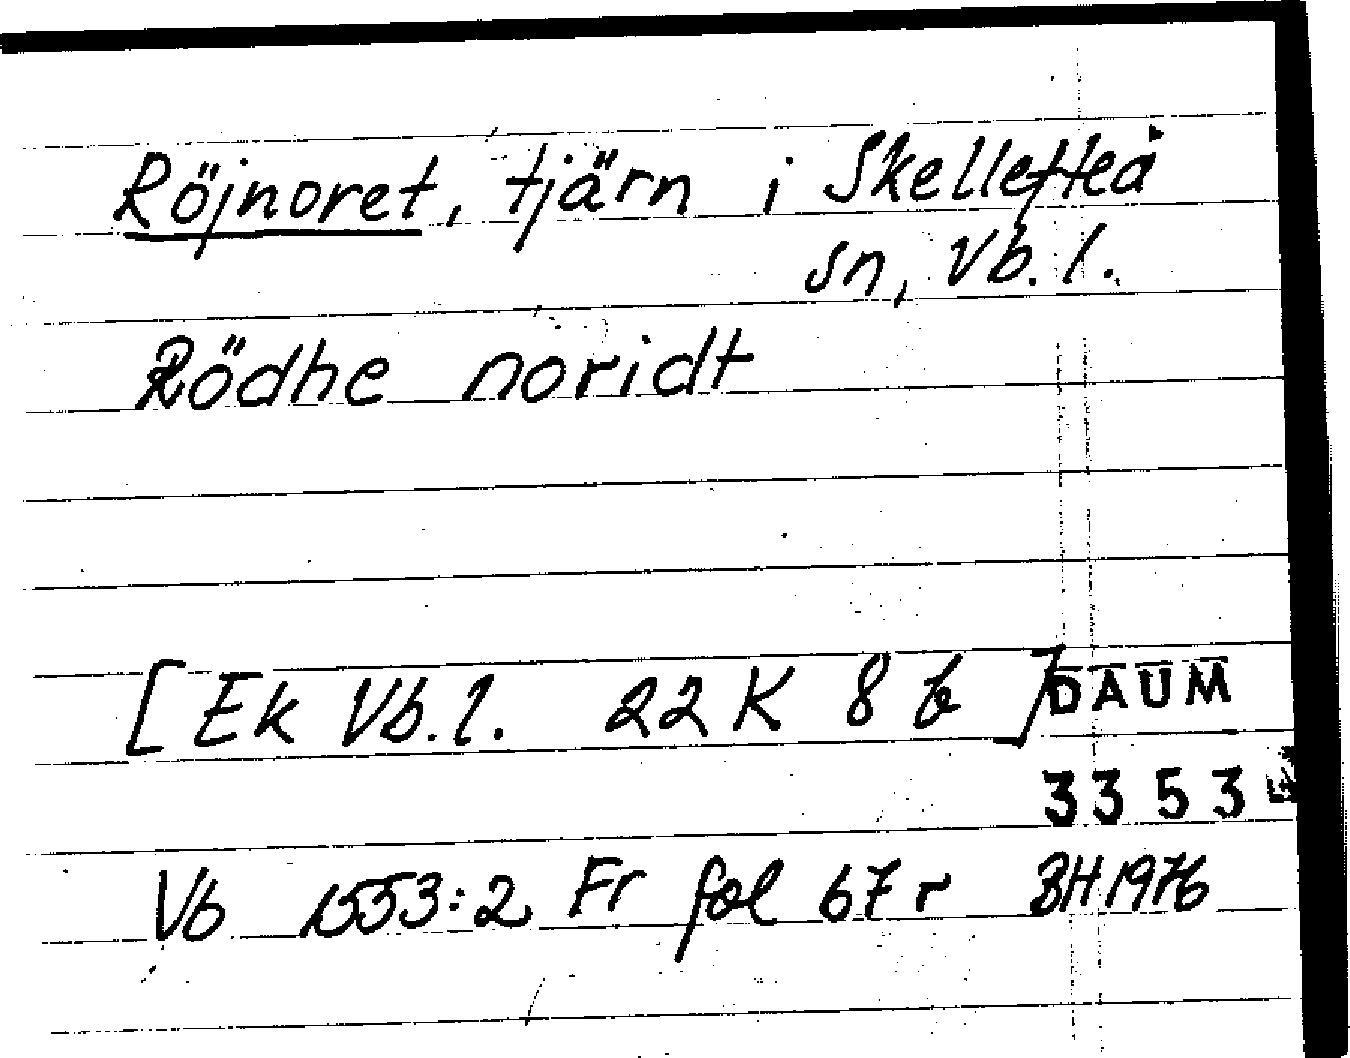 Röjnoret, tjärn i Skellefteå
sn, Vb. l.
Rödhe noridt
[Ek Vb.l. 22 K 8 b]
DAUM
3353
Vb 1553:2 Fr fol 67 r BH 1976